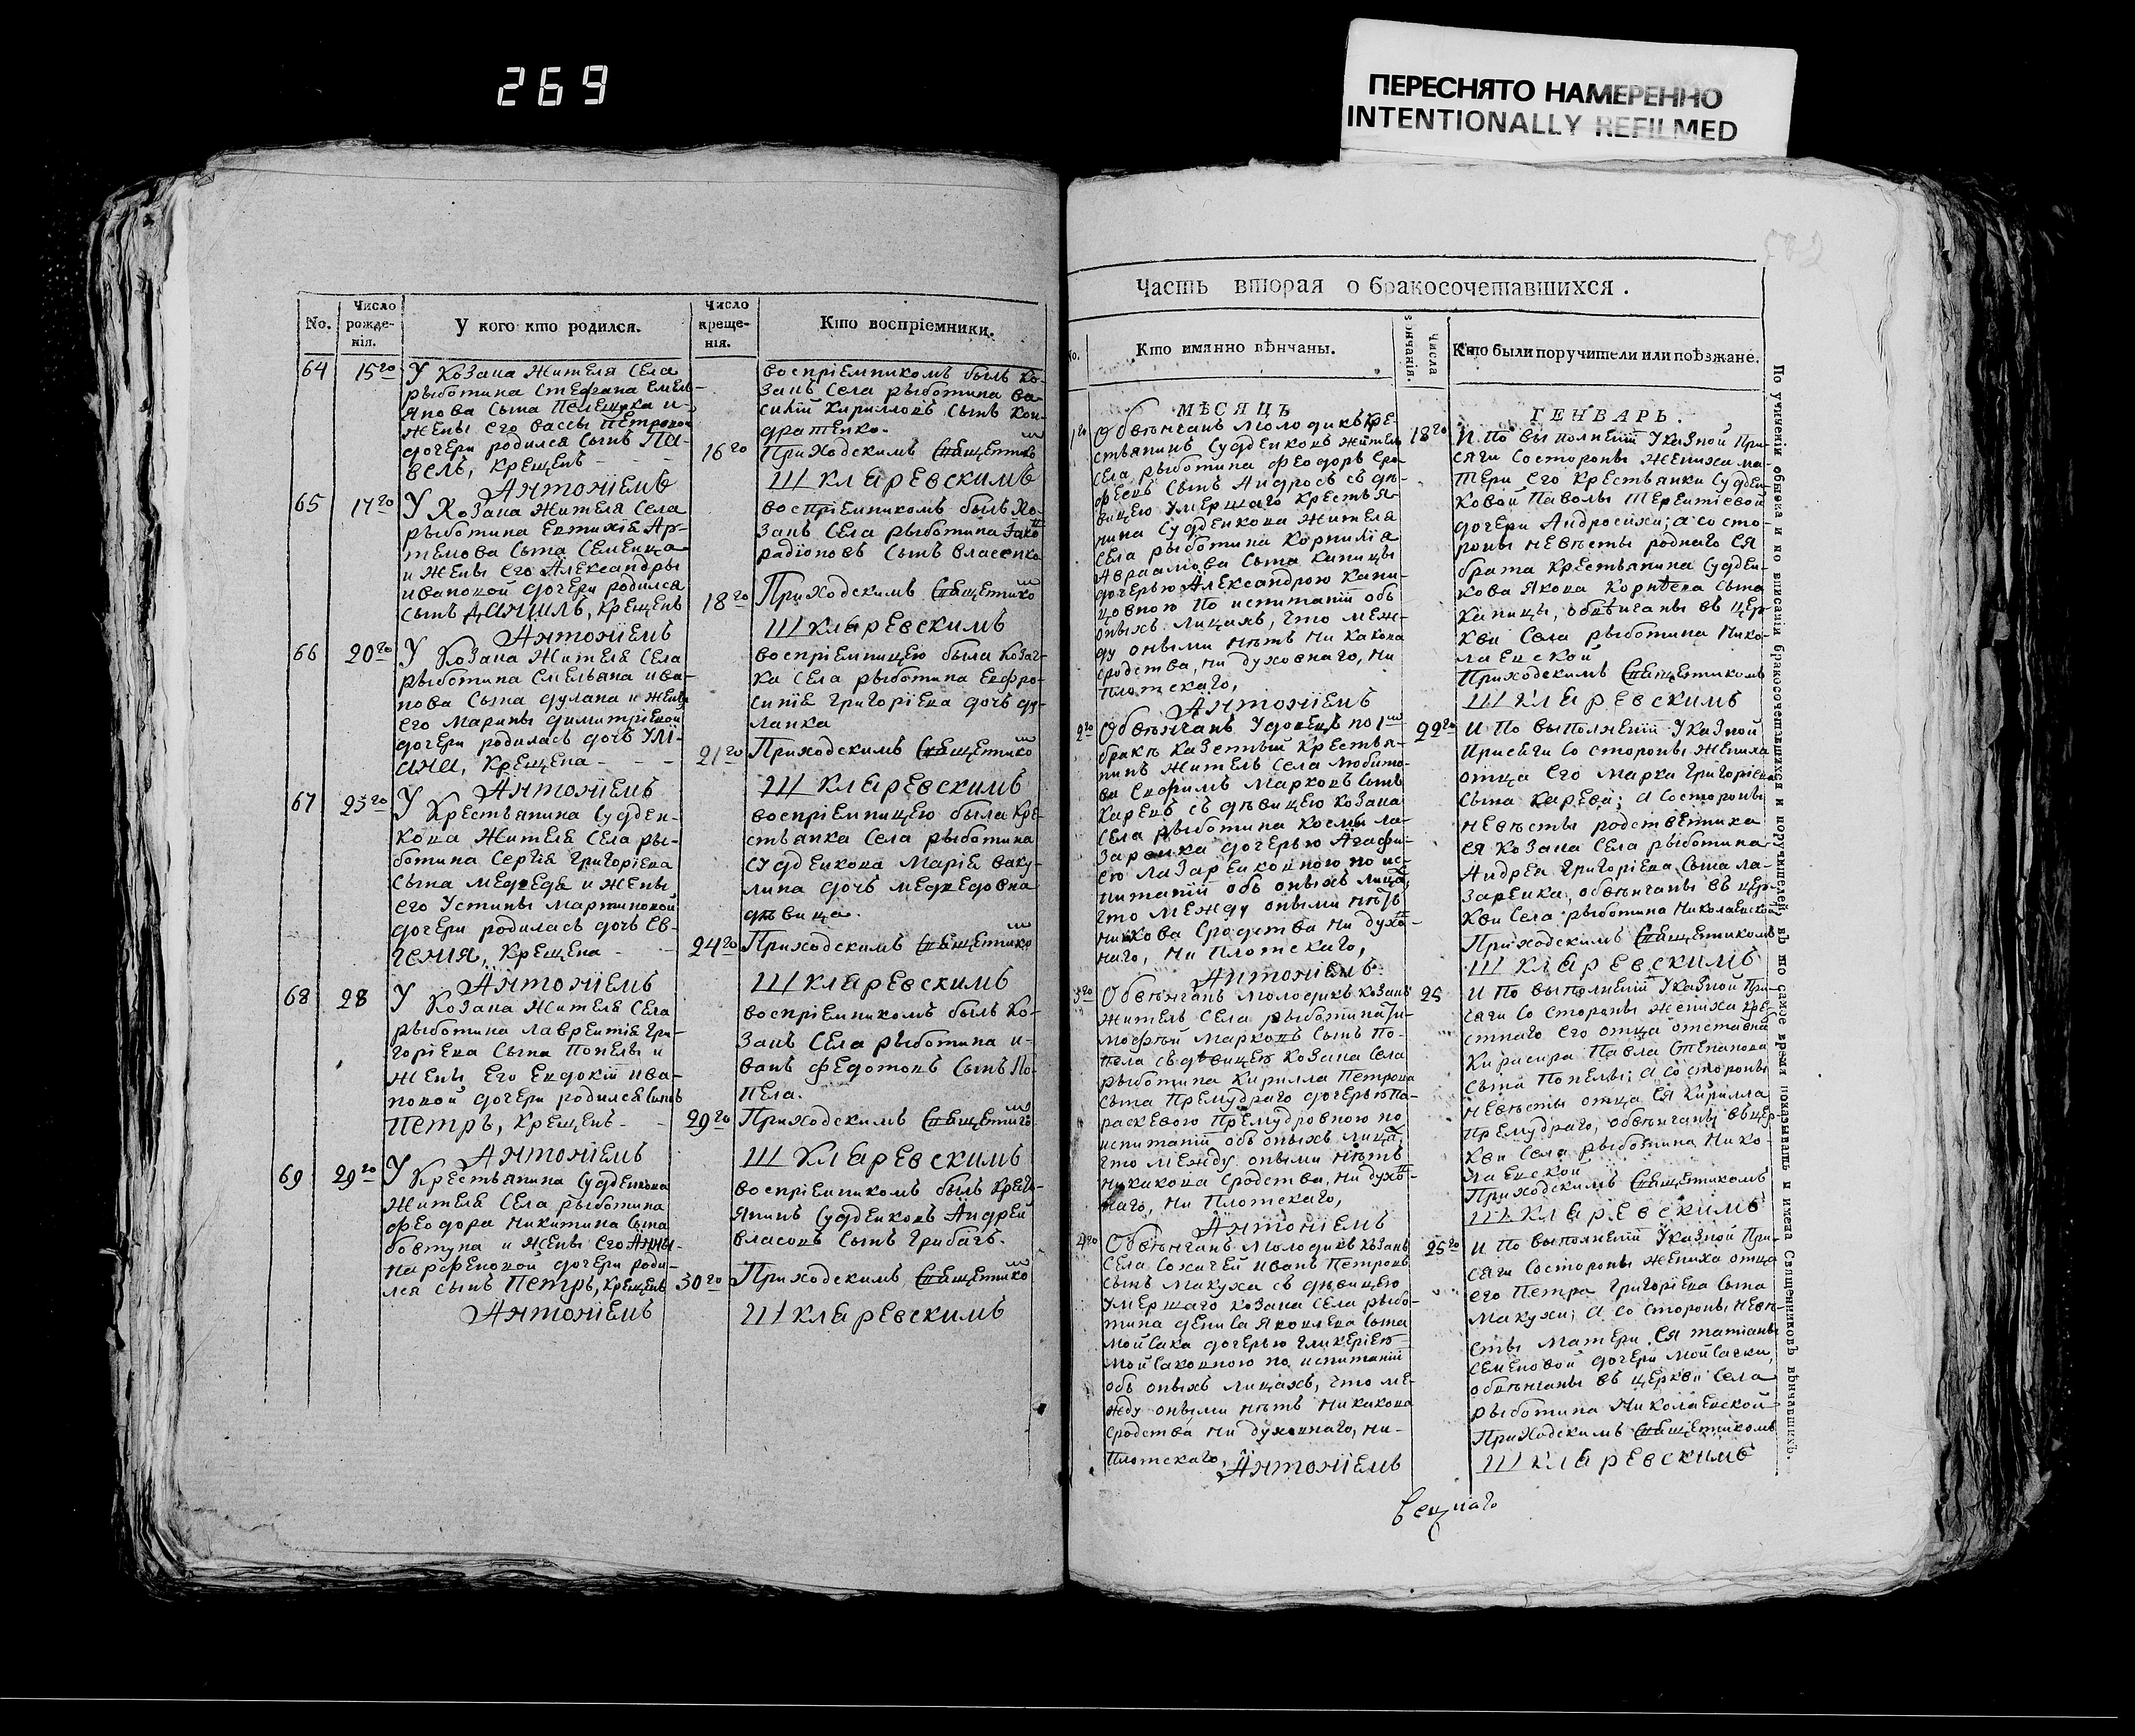 269
ПЕРЕСНЯТО НАМЕРЕННО
INTENTIONALLY REFILMED
No.
Число рожде- нія.
У кого кто родился.
Число креще- нія.
Кто воспріемники.
64
15го
У козака жителя села
рыботина Стефана Емель-
янова сына Пелещука и
жены его Вассы Петровой
дочери родился сынъ Па-
велъ, крещенъ
Антоніемъ
воспріемникомъ былъ ко-
закъ села рыботина ва-
силій кирилловъ сынъ кон-
дратенко.
16го
Приходскимъ Священнико
Шкляревскимъ
65
17го
У козака жителя села
рыботина Евтихія Ар-
темова сына Семенца
и жены его Александры
ивановой дочери родился
сынъ Даніилъ, крещенъ
Антоніемъ
воспріемникомъ былъ ко-
закъ села рыботина Іако
радіоновъ сынъ власенко
18го
Приходскимъ Священнико
Шкляревскимъ
66
20го
У козака жителя села
рыботина Емельяна ива-
нова сына дулапа и жены
его Марины димитріевой
дочери родилась дочь Улі-
ана, крещена
Антоніемъ
воспріемницею была козач-
ка села рыботина Евфро-
синія григоріева дочь ду-
лапка
21го
Приходскимъ Священнико
Шкляревскимъ
67
23го
У крестьянина Судіен-
кова жителя села ры-
ботина Сергія григоріева
сына медведя и жены
его Устины мартиновой
дочери родилась дочь Ев-
генія, крещена
Антоніемъ
воспріемницею была кре-
стьянка села рыботина
Судіенкова Марія ваку-
лина дочь медведовна
дѣвица.
24го
Приходскимъ Священнико
Шкляревскимъ
68
28
У козака жителя села
рыботина лаврентія гри-
горіева сына Попелы и
жены его Евдокіи ива-
новой дочери родился сынъ
Петръ, крещенъ
Антоніемъ
воспріемникомъ былъ ко-
закъ села рыботина и-
ванъ федотовъ сынъ По-
пела.
29го
Приходскимъ Священнико
Шкляревскимъ
69
29го
У крестьянина Судіенкова
жителя села рыботина
феодора никитина сына
бовтуна и жены его Анны
парфеновой дочери роди-
лся сынъ Петръ, крещенъ
Антоніемъ
воспріемникомъ былъ крест-
янинъ Судіенковъ Андрей
власовъ сынъ грибачъ.
30го
Приходскимъ Священнико
Шкляревскимъ
Часть вторая о бракосочетавшихся.
No.
Кто имянно вѣнчаны.
Числа вѣнчанія.
Кто были поручители или поѣзжане.
МѢСЯЦЪ
ГЕНВАРЬ.
1го
Обвѣнчанъ молодикъ кре-
стьянинъ Судіенковъ житель
села рыботина феодоръ Еро-
феевъ сынъ Андросъ съ дѣ-
вицею умершаго крестья-
нина Судіенкова жителя
села рыботина корнилія
Авраамова сына капицы
дочерью Александрою капи-
цовною по испитаніи объ
оныхъ лицахъ, что меж-
ду оными нѣтъ ни какова
сродства, ни духовнаго, ни
плотскаго,
Антоніемъ
18го
И по выполненіи указной при-
сяги состороны жениха ма-
тери его крестьянки Судіен-
ковой Паволы Терентіевой
дочери Андросихи; а со сто-
роны невѣсты роднаго ея
брата крестьянина Судіен-
кова Якова корнѣева сына
капицы, обвѣнчаны въ цер-
кви села рыботина Нико-
лаевской
Приходскимъ Священникомъ
Шкляревскимъ
2го
Обвѣнчанъ удовецъ по 1м
бракѣ казенный крестья-
нинъ житель села любито-
ва Евфимъ Марковъ сынъ
каревъ съ дѣвицею козака
села рыботина косми ла-
заренка дочерью Агафи-
ею лазаренковною по ис-
питаніи объ оныхъ лица,
что между оными нѣтъ
никакова сродства ни духо-
наго, ни плотскаго,
Антоніемъ
22го
И по выполненіи указной
присяги со стороны жениха
отца его Марка григоріева
сына карева; а состороны
невѣсты родственника
ея козака села рыботина
Андрея григоріева сына ла-
заренка, обвѣнчаны въ цер-
кви села рыботина николаевской
Приходскимъ Священникомъ
Шкляревскимъ
3го
Обвѣнчанъ молодикъ козакъ
житель села рыботина Ти-
мофей марковъ сынъ По-
пела съ дѣвицею козака села
рыботина кирилла петрова
сына премудраго дочерью Па-
раскевою Премудровною по
испитаніи объ оныхъ лица,
что между оными нѣтъ
никакова сродства, ни духо-
наго, ни плотскаго,
Антоніемъ
25
И по выполненіи указной при-
сяги со стороны жениха кре-
стнаго его отца отставна
кирасира Павла Степанова
сына Попелы; а состороны
невѣсты отца ея кирилла
премудраго, обвѣнчаны въ цер-
кви села рыботина Нико-
лаевской
Приходскимъ Священникомъ
Шкляревскимъ
4го
Обвѣнчанъ молодикъ козакъ
села Собичей иванъ Петровъ
сынъ макуха съ дѣвицею
умершаго козака села рыбо-
тина дениса Яковлева сына
мойсака дочерью гликеріею
мойсаковною по испитаніи
объ оныхъ лицахъ, что ме-
жду оными нѣтъ никакова
сродства ни духовнаго, ни
плотскаго,
Антоніемъ
25го
И по выполненіи указной при-
сяги состороны жениха отца
его петра григоріева сына
макухи; а со стороны невѣ-
сты матери ея татіаны
Семеновой дочери мойсачки,
обвѣнчаны въ церкви села
рыботина Николаевской
Приходскимъ Священникомъ
Шкляревскимъ
По учиненіи обыска и по взысканіи бракосочетавшихся и поручителей, въ то самое время показывать и имена Священниковъ вѣнчавшихъ.